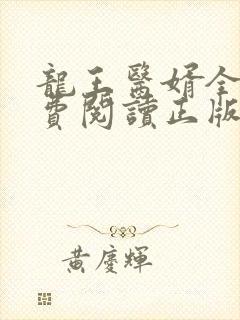 龍王醫婿全
費閱讀正版
黃慶輝